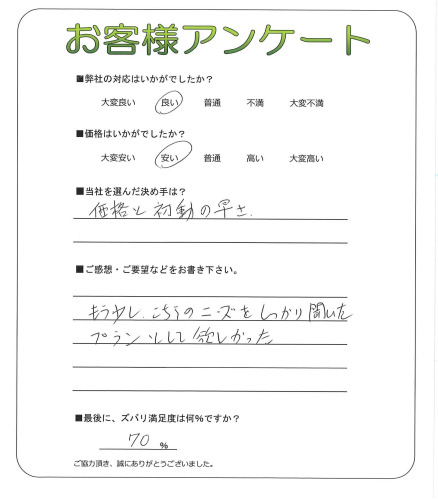 お客様アンケート
■弊社の対応はいかがでしたか?
大変良い 良い 普通 不満 大変不満
■価格はいかがでしたか?
大変安い 安い 普通 高い 大変高い
■当社を選んだ決め手は?
価格と初動の早さ.
■ご感想・ご要望などをお書き下さい。
もう少し、こちらのニーズをしっかり聞いた
プランにして欲しかった
■最後に、ズバリ満足度は何%ですか?
70 %
ご協力頂き、誠にありがとうございました。